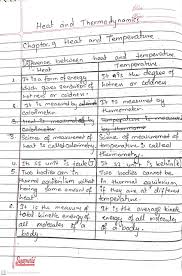 Heat and Thermodynamics
Chapter.9 Heat and Temperature
Difference between heat and temperature
Heat
Temperature
1. It is a form of energy
which gives sensation of
hotness or coldness
It is the degree of
hotness or coldness
2. It is measured by
calorimeter
It is measured by
thermometer
3. Science of measurement of
heat is called calorimetry
Science of measurement of
temperature is called
thermometry
4. Its SI unit is Joule (J)
Its SI unit is kelvin (K)
5. Two bodies can in
thermal equilibrium
having same amount of
heat
Two bodies cannot be
in thermal equilibrium
if they are at different
temperature
6. It is the measure of
total kinetic energy of
all molecules of a
body
It is the average kinetic
energy of all molecules
of a body